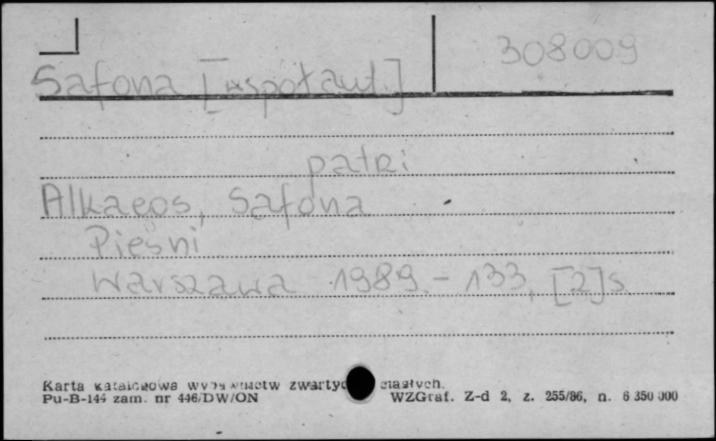 308009
Safona [współaut.]
patrz
Alkaeos, Safona
Pieśni
Warszawa 1989. - 133, [2] s
Karta katalogowa wydawnictw zwartych ciągłych.
Pu-B-144 zam. nr 446/DW/ON WZGraf. Z-d 2, z. 255/86, n. 6 350 000